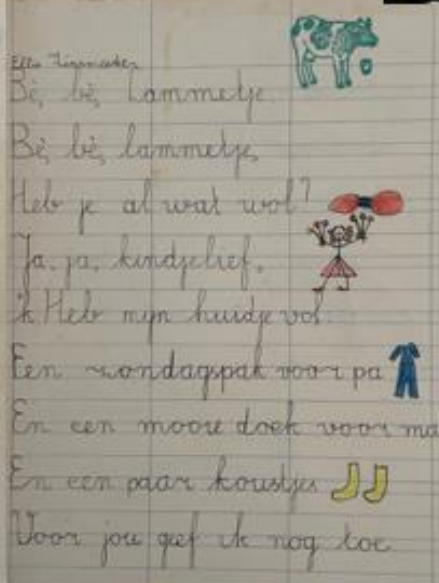 Bè, bè, Lammetje
Bè, bè, lammetje,
Heb je al wat wol?
Ja, ja, kindjelief,
ik Heb mijn huidje vol
Een zondagspak voor pa
En een mooie doek voor ma
En een paar kousjes
Voor jou geef ik nog toe